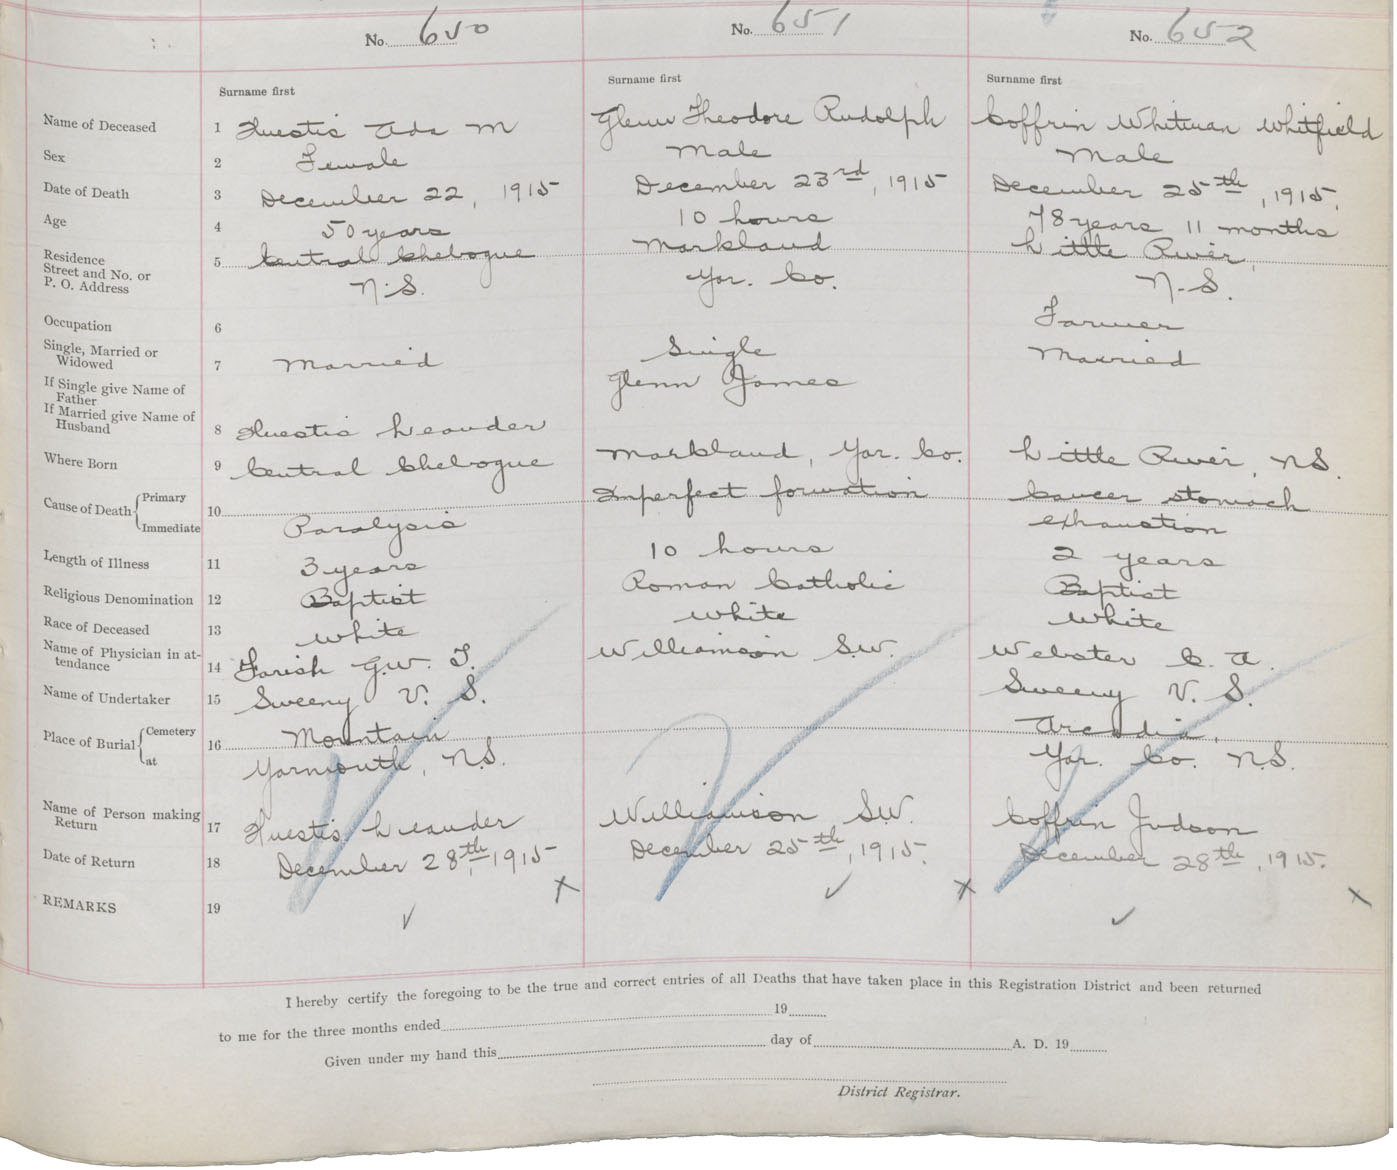 No. 650 No. 651 No. 652
Surname first Surname first Surname first
Name of Deceased 1 Huestis Ada M Glenn Theodore Rudolph Coffrin Whitman Whitfield
Sex 2 Female Male Male
Date of Death 3 December 22, 1915 December 23rd, 1915 December 25th, 1915.
Age 4 50 years 10 hours 78 years 11 months
Residence Street and No. or P. O. Address 5 Central Chebogue Markland Little River,
N.S. Yar. Co. N.S.
Occupation 6 Farmer
Single, Married or Widowed 7 Married Single Married
If Single give Name of Father Glenn James
If Married give Name of Husband 8 Huestis Leander
Where Born 9 Central Chebogue Markland, Yar. Co. Little River, NS.
Cause of Death { Primary 10 Imperfect formation Cancer stomach
Immediate Paralysis exhaustion
Length of Illness 11 3 years 10 hours 2 years
Religious Denomination 12 Baptist Roman Catholic Baptist
Race of Deceased 13 white white white
Name of Physician in attendance 14 Farish G.W. T. Williamson S.W. Webster C. A.
Name of Undertaker 15 Sweeny V. S. Sweeny V. S.
Place of Burial { Cemetery 16 Mountain Arcadia,
at Yarmouth, N.S. Yar. Co. N.S.
Name of Person making Return 17 Huestis Leander Williamson S.W. Coffrin Judson
Date of Return 18 December 28th, 1915 December 25th, 1915. December 28th, 1915.
REMARKS 19
I hereby certify the foregoing to be the true and correct entries of all Deaths that have taken place in this Registration District and been returned
to me for the three months ended 19
Given under my hand this day of A. D. 19
District Registrar.